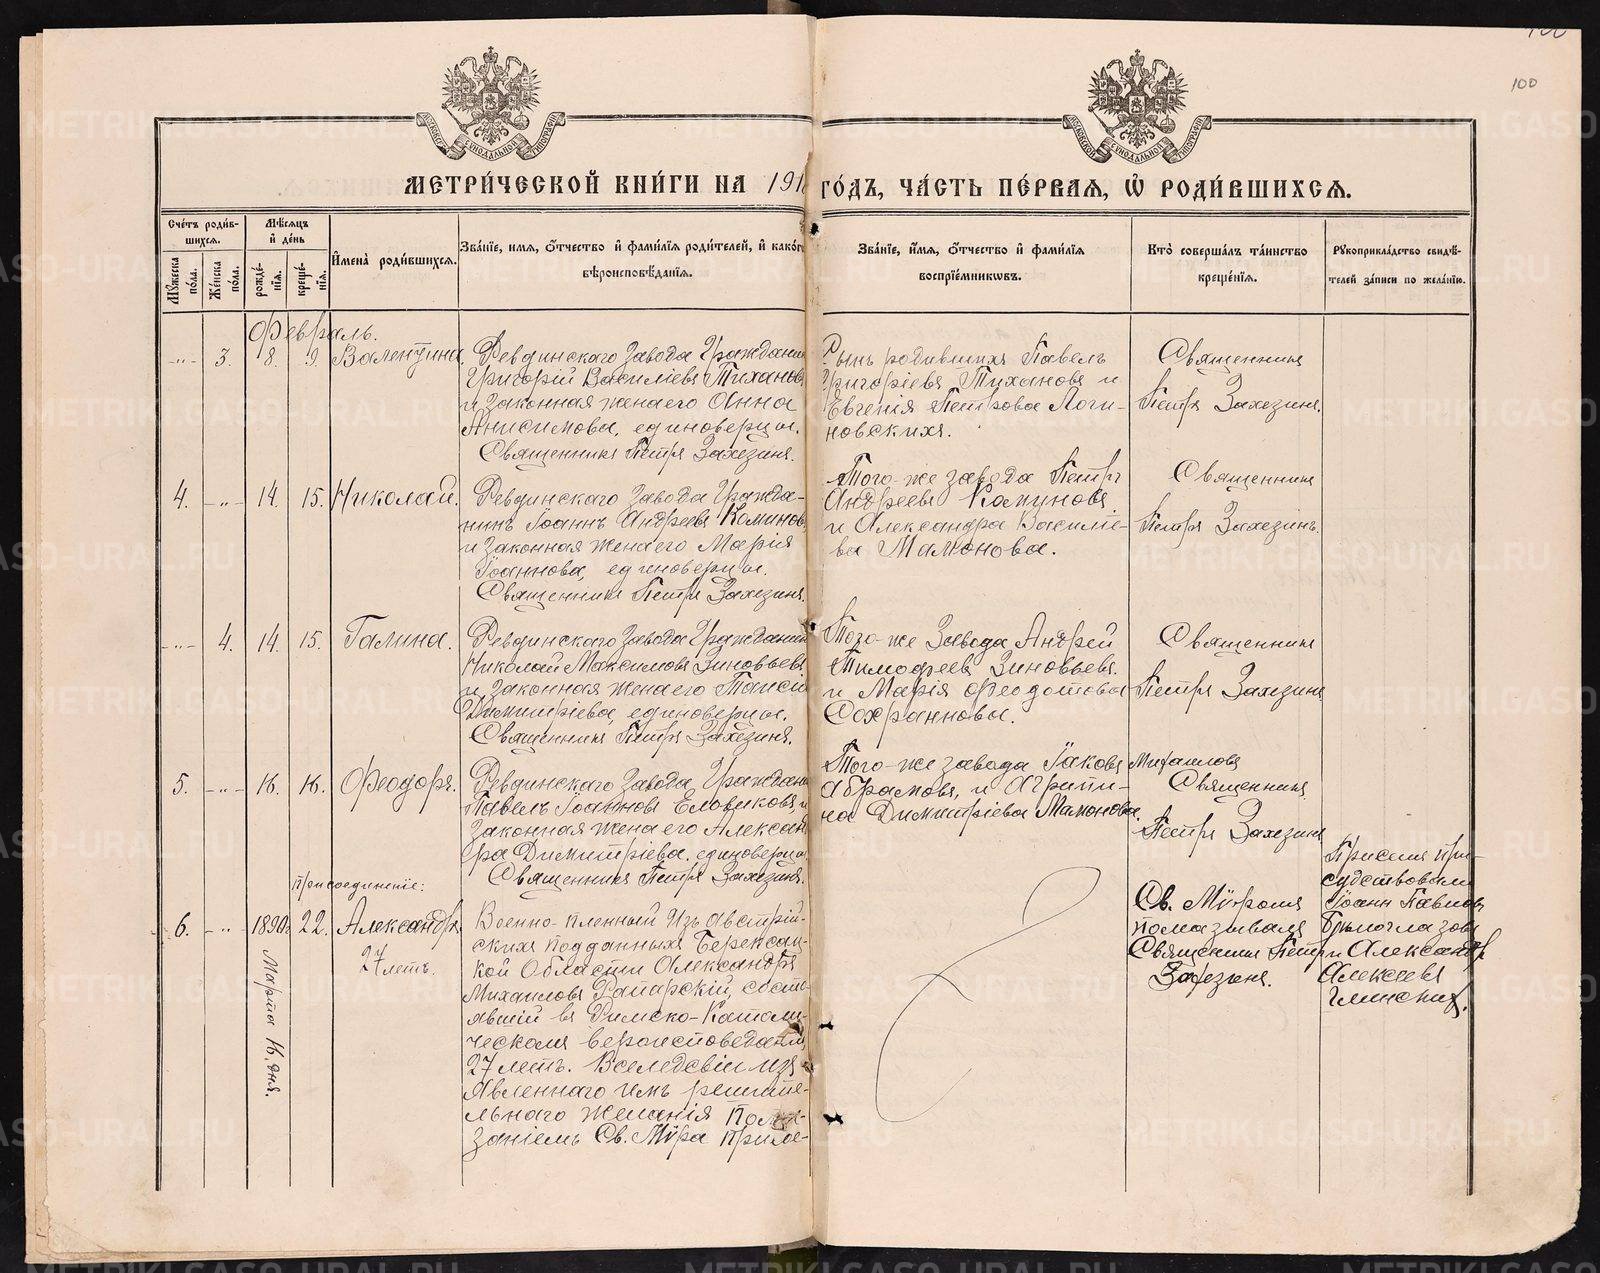 100
МОСКОВСКОЙ СѴНОДАЛЬНОЙ ТИПОГРАФІИ
МОСКОВСКОЙ СѴНОДАЛЬНОЙ ТИПОГРАФІИ
МЕТРИ́ЧЕСКОЙ КНИ́ГИ НА 191
ГО́ДЪ, ЧА́СТЬ ПЕ́РВАЯ, Ѡ҆ РОДИ́ВШИХСЯ.
Сче́тъ роди́в-
шихся.
Мѣ́сяцъ
и҆ де́нь
Мꙋ́жеска по́ла.
Же́нска по́ла.
рожде́-
нїя.
креще́-
нїя.
И҆мена̀ роди́вшихся.
Зва́нїе, имя, ѻ҆́тчество и҆ фами́лїя роди́телей, и҆ како́г
вѣроисповѣ́данїя.
Зва́нїе, и҆́мя, ѻ҆́тчество и҆ фами́лїя
воспрїе́мникѡвъ.
Кто̀ соверша́лъ та́инство
креще́нїя.
Рꙋкоприкла́дство свидѣ́-
телей за́писи по жела́нїю.
Февраль.
-"- 3. 8. 9. Валентина
Ревдинскаго завода Граждани
Григорій Василіевъ Тихановъ
и законная жена его Анна
Анисимова, единоверцы.
Священникъ Петръ Захезинъ.
родившихъ Павелъ
Григоріевъ Тихановъ и
Евгенія Петрова Логи-
новскихъ.
Священникъ
Петръ Захезинъ.
4. -"- 14. 15. Николай.
Ревдинскаго завода Гражда-
нинъ Іоаннъ Андреевъ
и законная жена его Марія
Іоаннова, единоверцы.
Священникъ Петръ Захезинъ.
Того-же завода Петръ
Андреевъ
и Александра Василіе-
ва Мамонова.
Священникъ
Петръ Захезинъ.
-"- 4. 14. 15. Галина.
Ревдинскаго завода Гражданин
Николай Максимовъ Зиновьевъ
и законная жена его Таисія
Димитріева, единоверцы.
Священникъ Петръ Захезинъ.
Того-же завода Андрей
Тимофеевъ Зиновьевъ
и Марія Феодотова
Сохраннова.
Священникъ
Петръ Захезинъ
5. -"- 16. 16. Феодоръ.
Ревдинскаго завода Граждани
Павелъ Іоанновъ Еловиковъ, и
законная жена его Алексан
ра Димитріева, единоверцы
Священникъ Петръ Захезинъ.
Того-же завода Іаковъ Михаиловъ
Абрамовъ, и Агрипи-
на Димитріева Мамонова.
Священникъ
Петръ Захезинъ
присоединеніе:
6. -"- 1890г. 22. Александръ
Марта 16. дня.
27 летъ.
Военно-пленный изъ Австрій-
скихъ подданныхъ
кой Области Александръ
Михаиловъ
явшій въ Римско-Католи-
ческомъ вероисповеданіи
27 летъ. Вследсвіи изъ
явленнаго имъ решите-
льнаго желанія Пома-
заніемъ Св. Мѵра
Св. Мѵромъ
помазывалъ
Священникъ Петръ
Захезинъ.
При семъ при-
судствовали
Іоаннъ Павловъ
и Александръ
Алексіевъ
METRIKI.GASO-URAL.RU